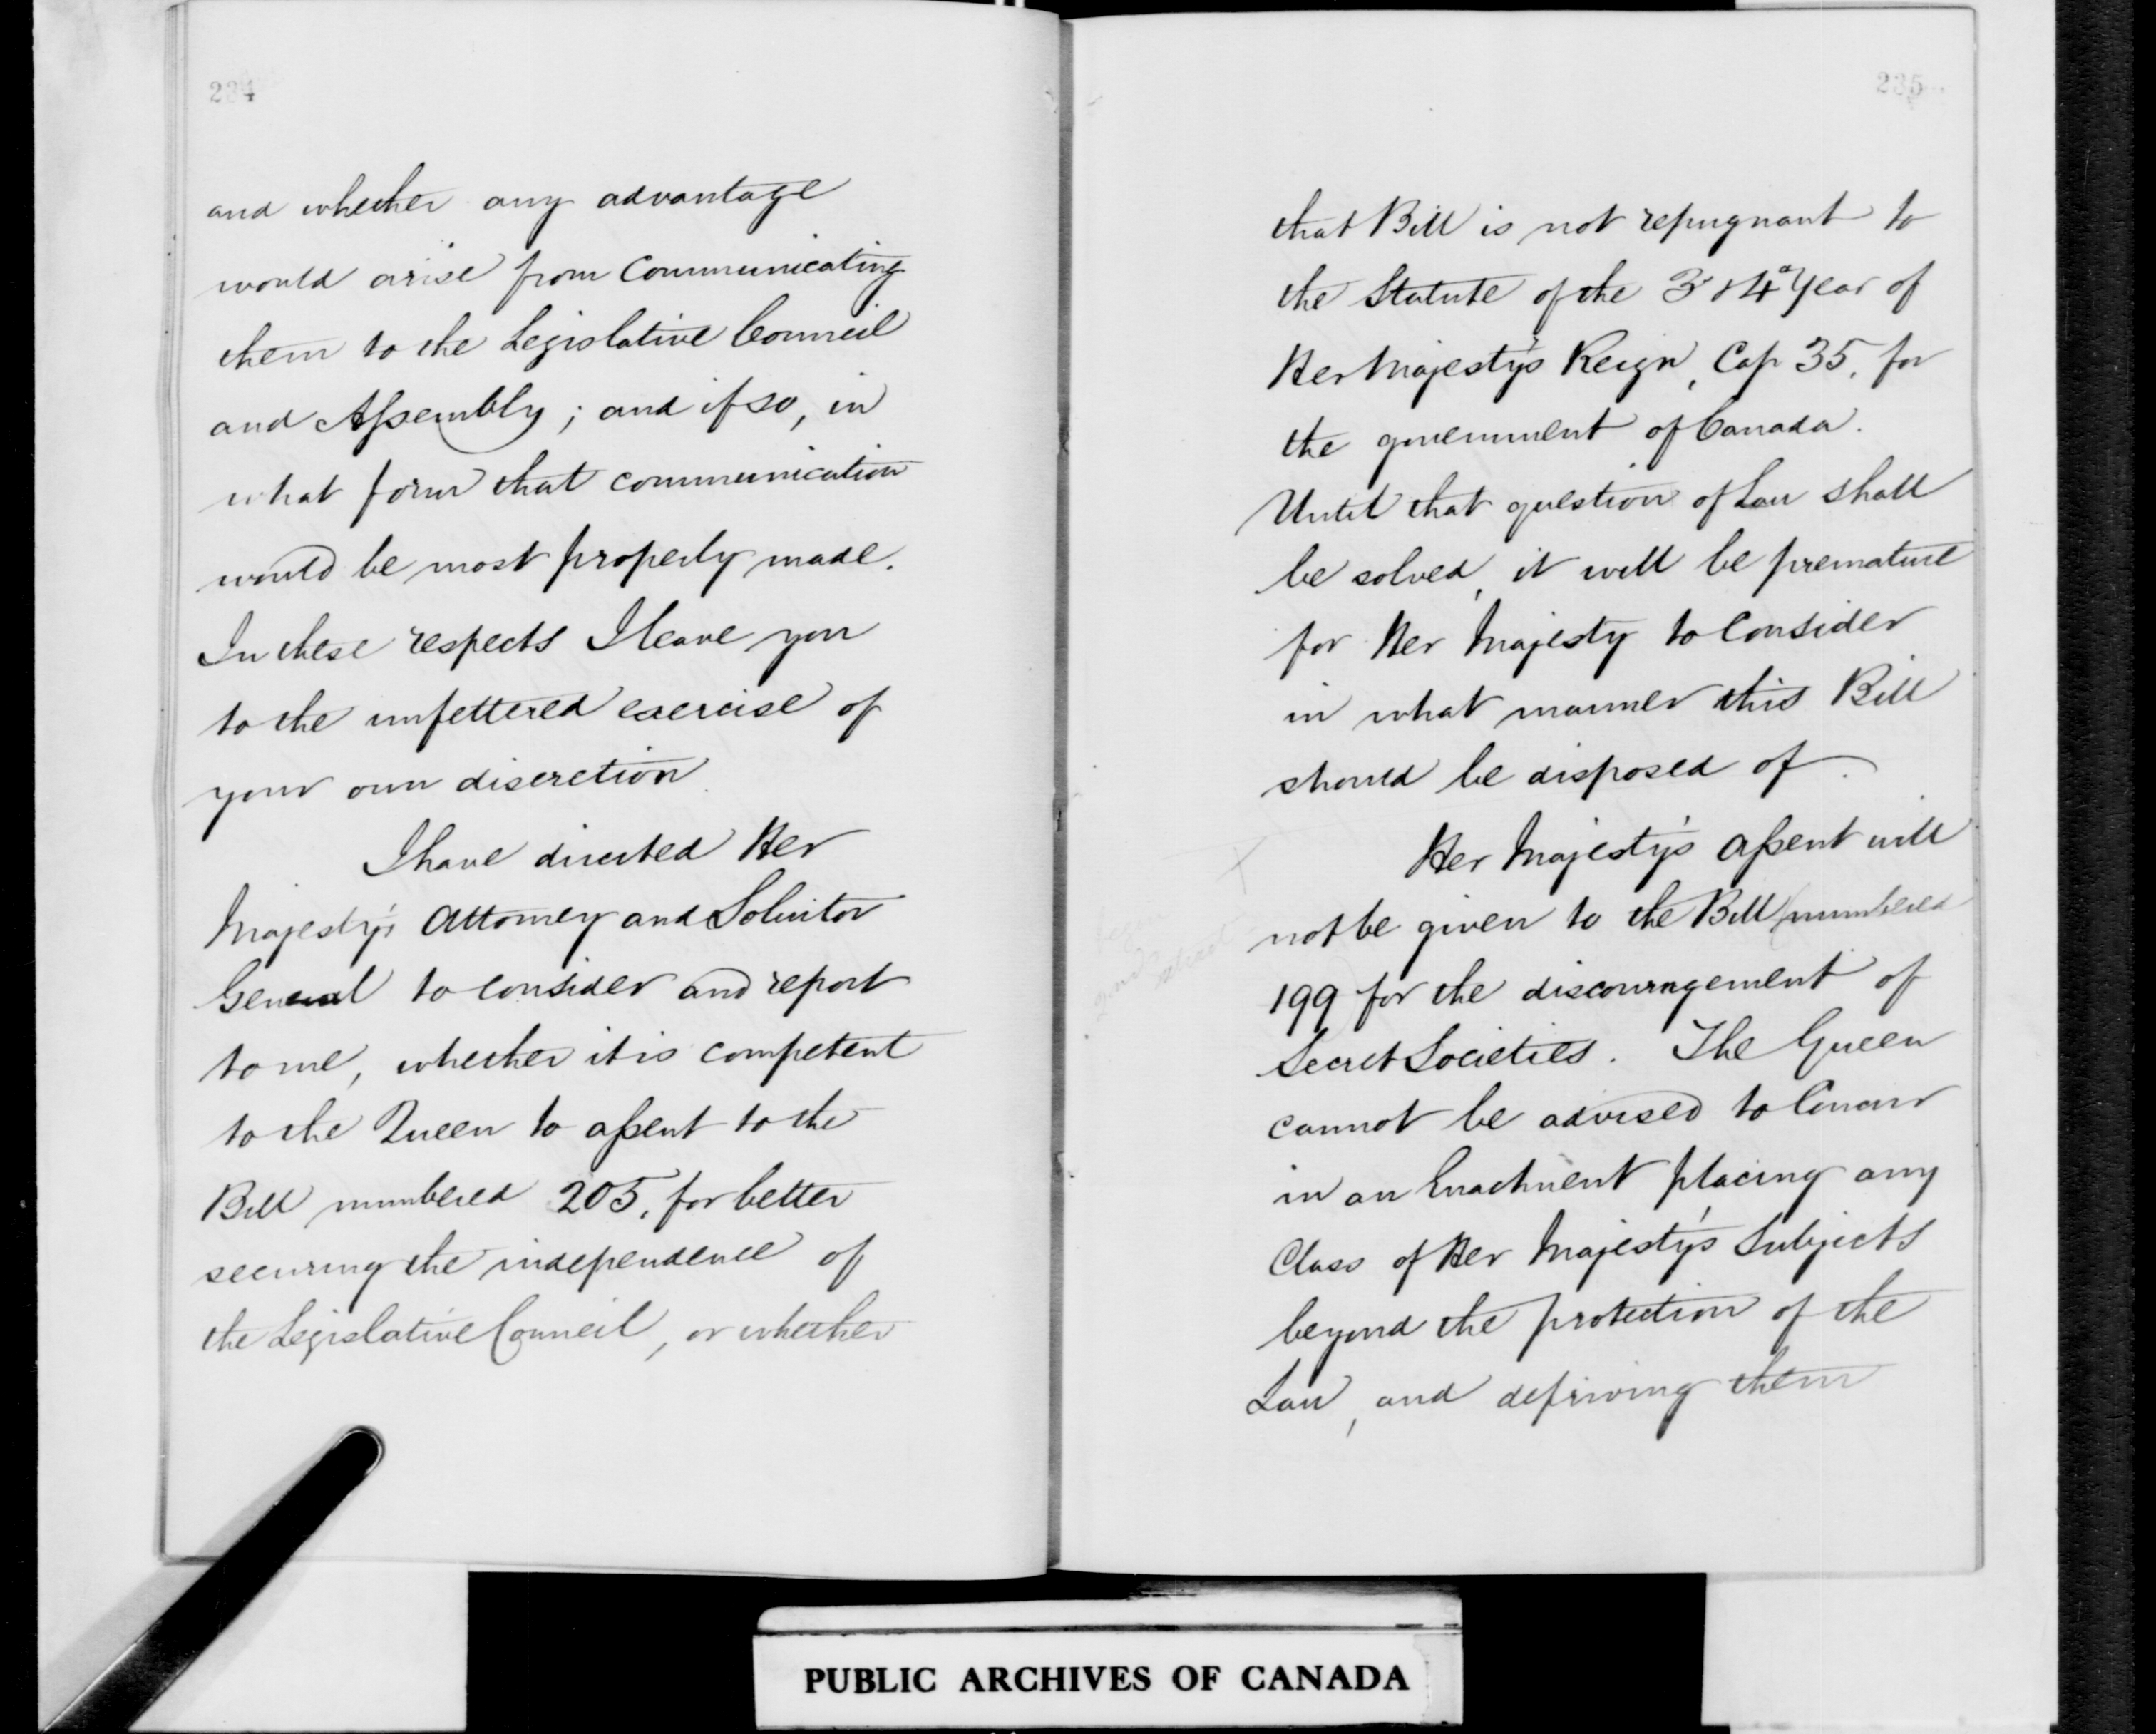 234
and whether any advantage
would arise from Communicating
them to the Legislative Council
and Assembly; and if so, in
what form that communication
would be most properly made.
In these respects I leave you
to the unfettered exercise of
your own discretion.
I have directed Her
Majesty's Attorney and Solicitor
General to consider and report
to me, whether it is competent
to the Queen to assent to the
Bill numbered 205, for better
securing the independence of
the Legislative Council, or whether
235
that Bill is not repugnant to
the Statute of the 3 & 4 Year of
Her Majesty's Reign, Cap 35, for
the government of Canada.
Until that question of Law shall
be solved, it will be premature
for Her Majesty to Consider
in what manner this Bill
should be disposed of.
Her Majesty's assent will
not be given to the Bill (numbered
199 for the discouragement of
Secret Societies. The Queen
cannot be advised to Concur
in an Enactment placing any
Class of Her Majesty's Subjects
beyond the protection of the
Law, and depriving them
PUBLIC ARCHIVES OF CANADA